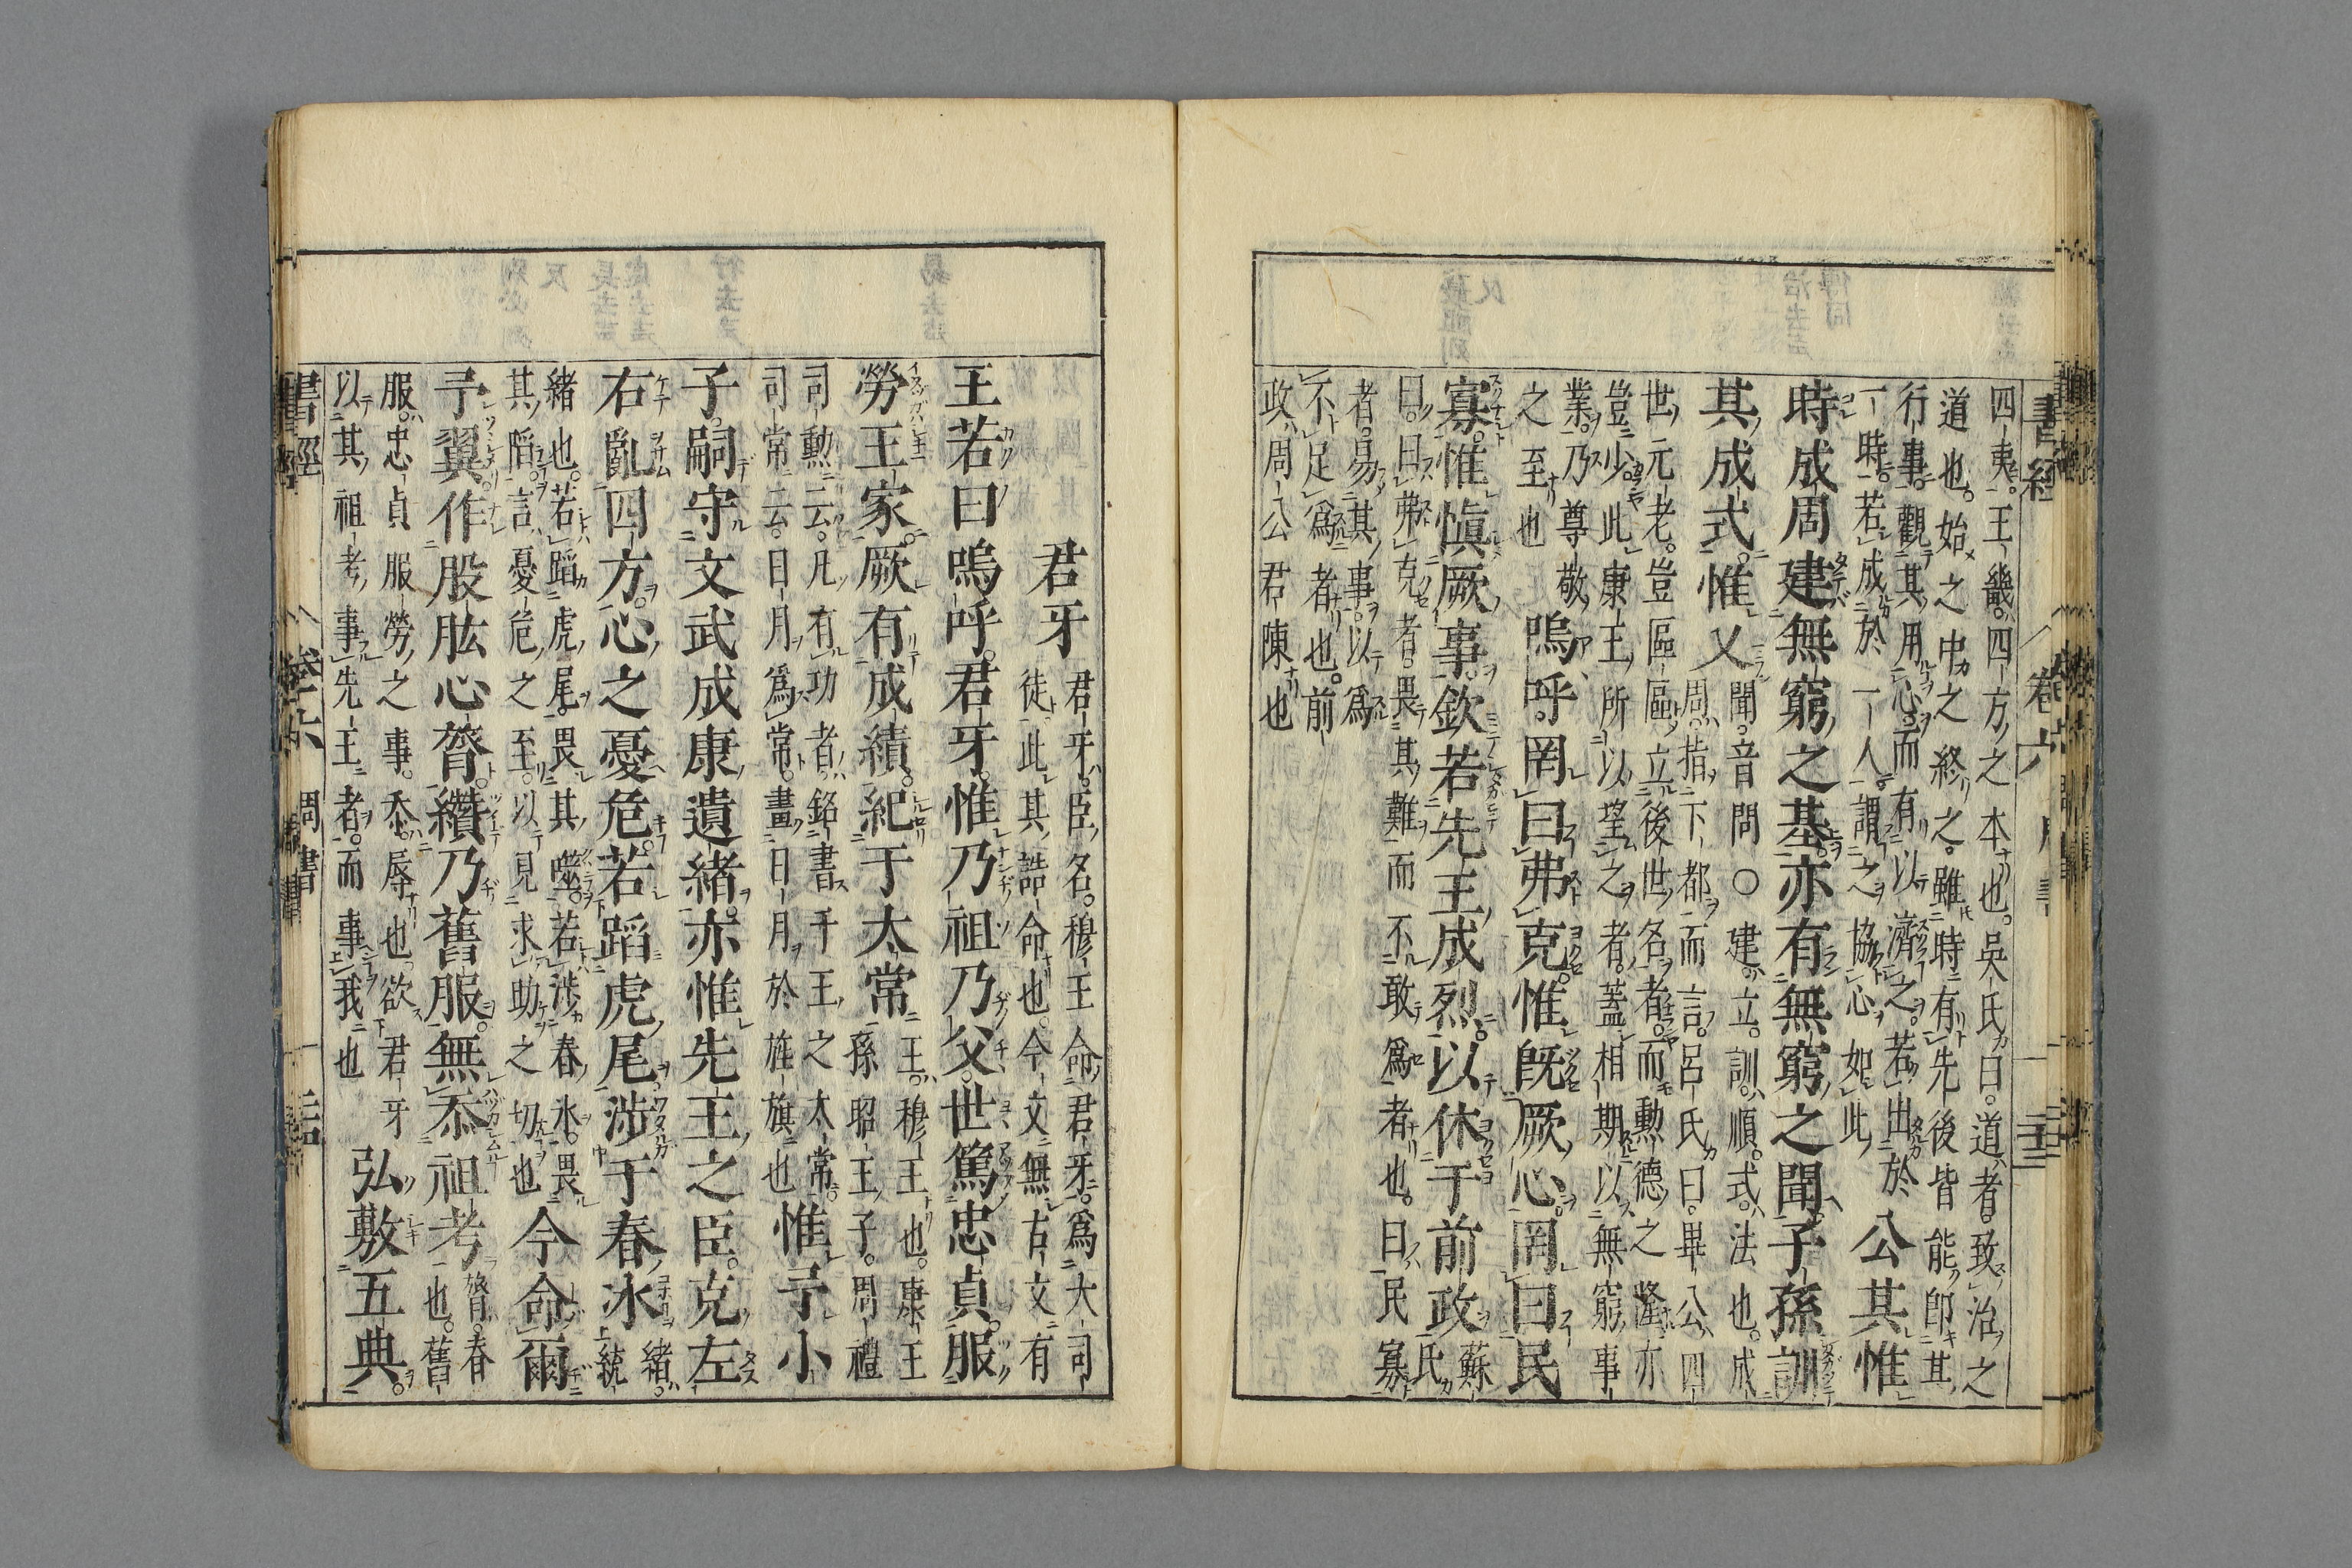 書經 卷六
四夷。王畿。四方之本也。吳氏曰。道者。致治之
道也。始之中之終之。雖時有先後皆能卽其
行事。觀其用心。而有以濟之。若出於
一時。若成於一人。謂之協心如此
公其惟
時成周建無窮之基。亦有無窮之聞。子孫訓
其成式。惟乂
聞。音問○建。立。訓。順。式。法也。成
周。指下都而言。呂氏曰。畢公四
世元老。豈區區立後世名者。而勳德之隆。亦
豈少此。康王所以望之者。蓋相期以無窮事
業。乃尊敬
之至也
嗚呼。罔曰弗克。惟旣厥心。罔曰民
寡。惟愼厥事。欽若先王成烈。以休于前政
蘇
氏
曰。曰弗克者。畏其難而不敢爲者也。曰民寡
者。易其事。以爲
不足爲者也。前
政。周公君陳也
君牙
君牙。臣名。穆王命君牙。爲大司
徒。此其誥命也。今文無古文有
王若曰嗚呼。君牙。惟乃祖乃父。世篤忠貞。服
勞王家。厥有成績。紀于太常
王。穆王也。康王
孫昭王子。周禮
司勳云。凡有功者。銘書于王之太常。
司常云。日月爲常。畫日月於旌旗也
惟予小
子。嗣守文武成康遺緒。亦惟先王之臣。克左
右亂四方。心之憂危。若蹈虎尾。涉于春冰
緒。
統
緒也。若蹈虎尾。畏其噬。若涉春冰。畏
其陷。言憂危之至。以見求助之切也
今命爾
予翼。作股肱心膂。纘乃舊服。無忝祖考
膂。脊
也。舊
服。忠貞服勞之事。忝。辱也。欲君牙
以其祖考事先王者。而事我也
弘敷五典。
書經 卷六 周書